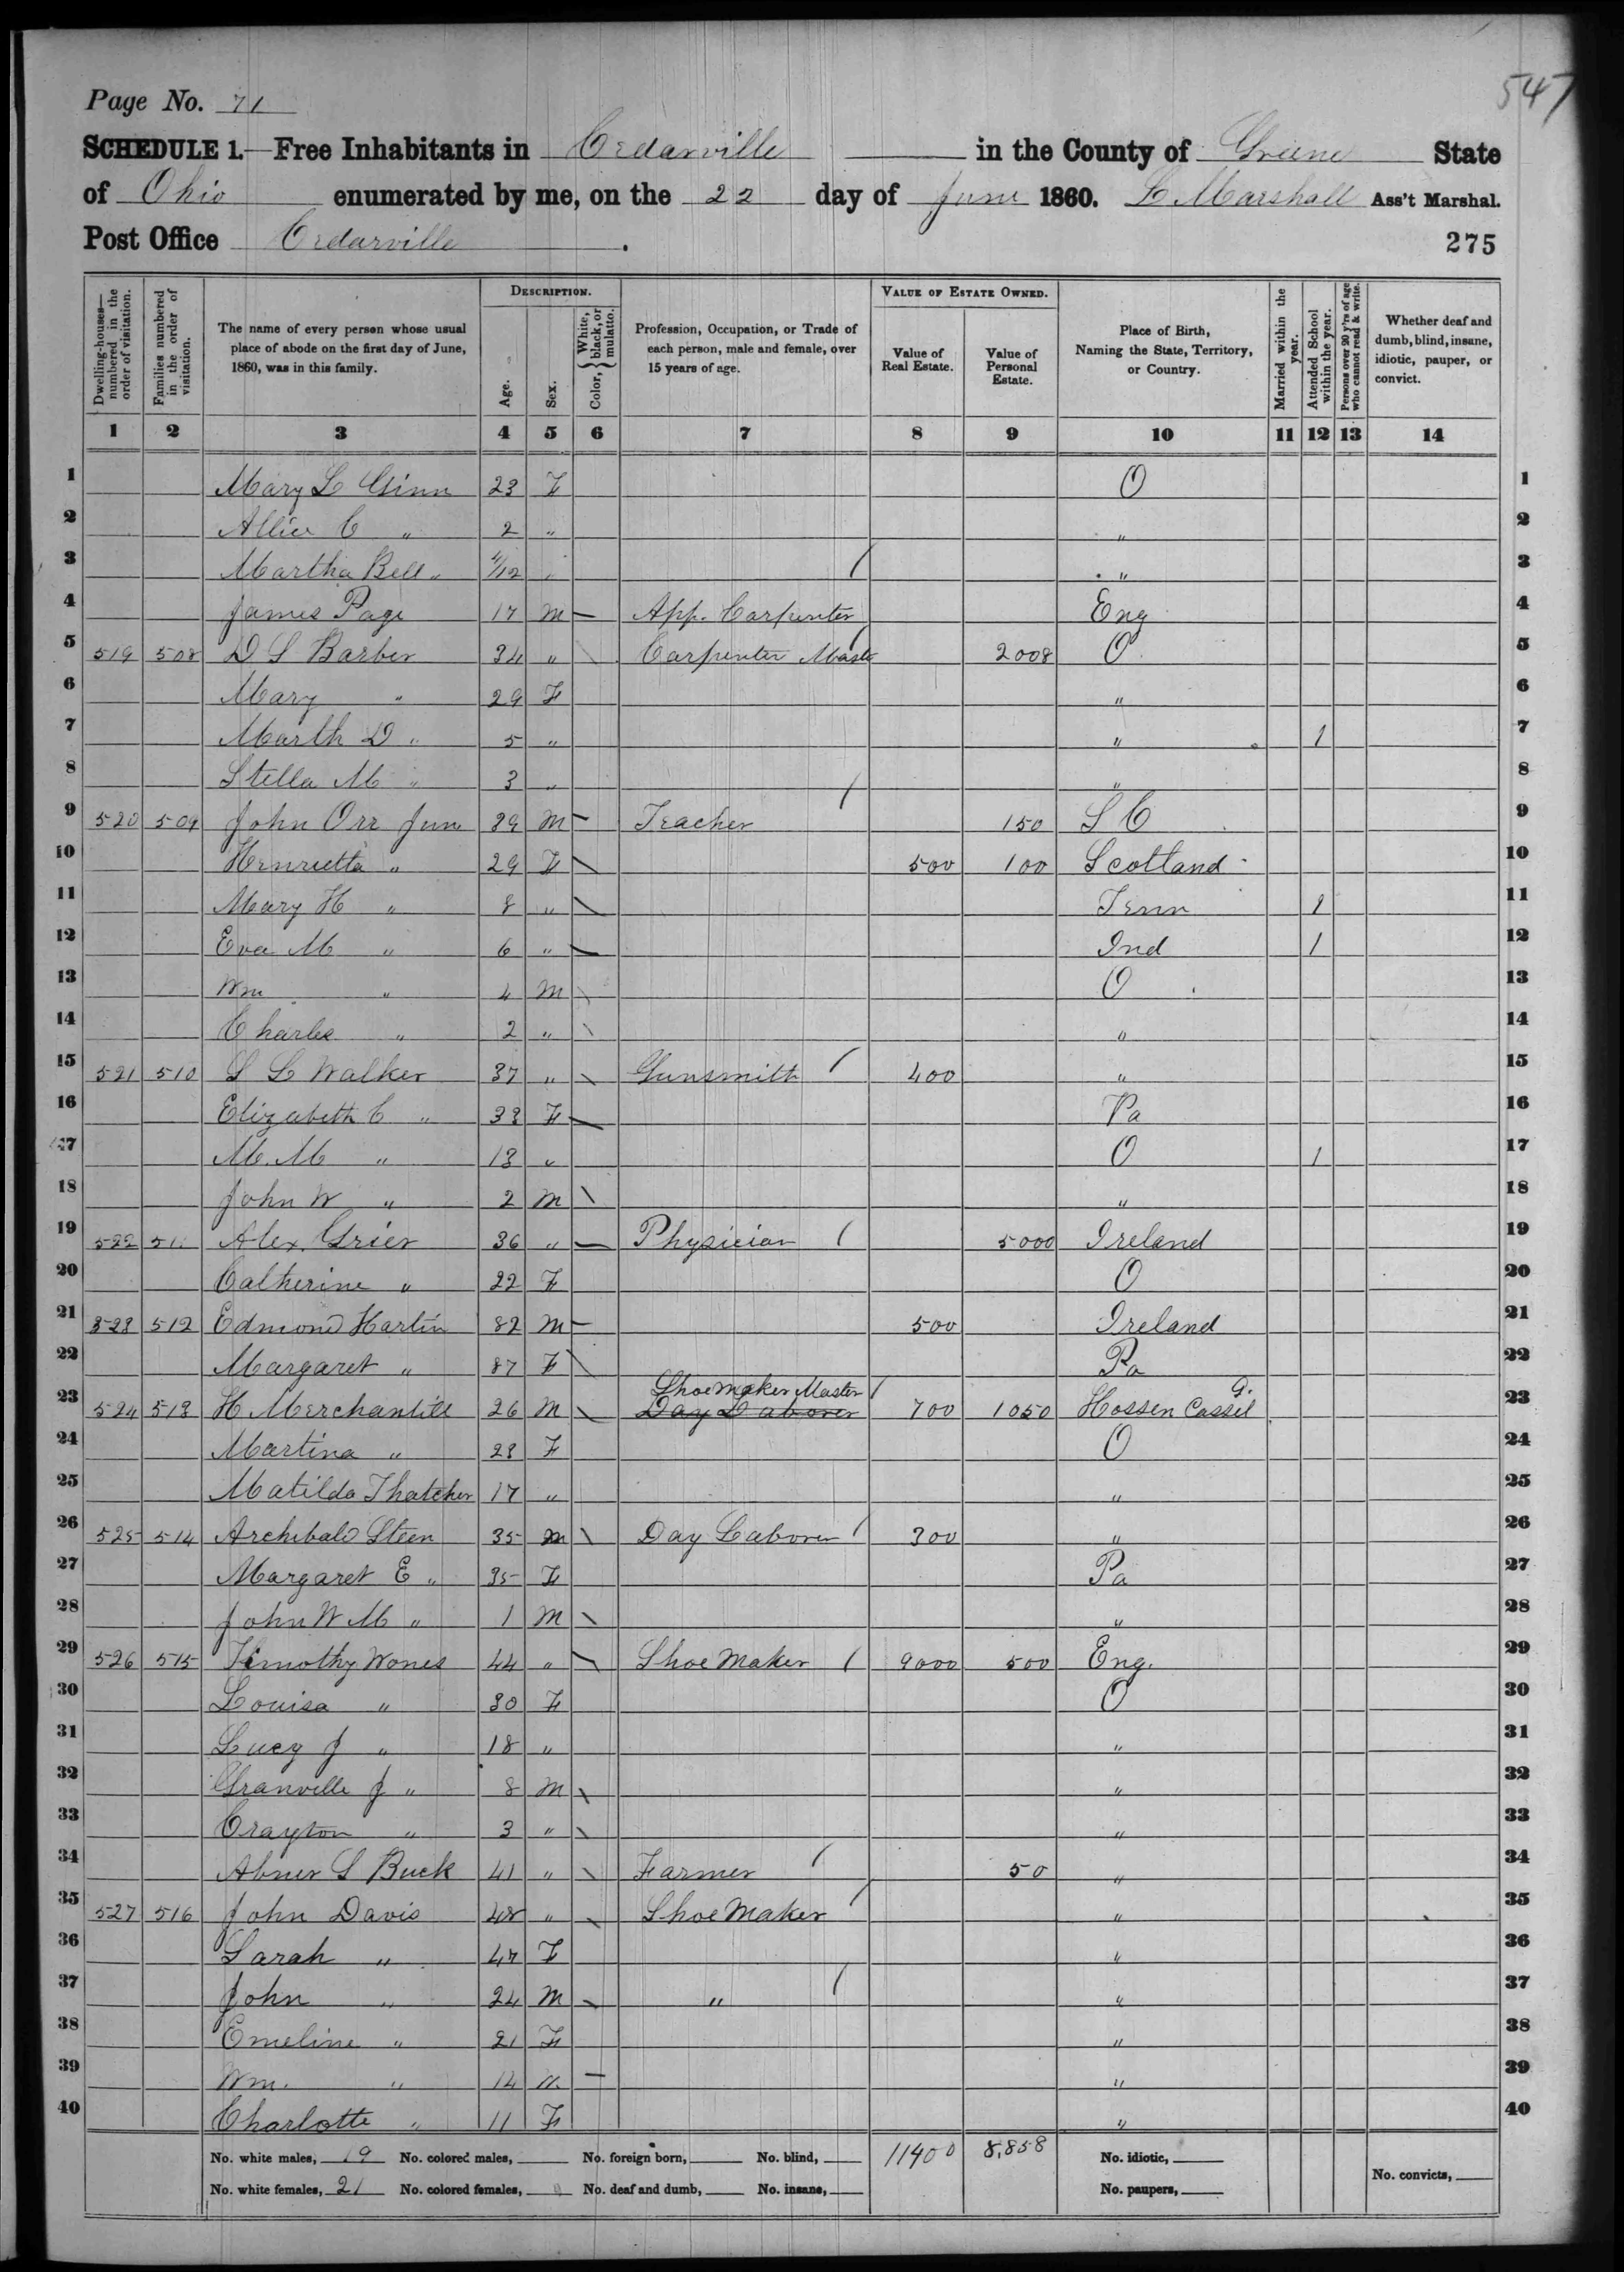 547
Page No. 71
SCHEDULE 1.—Free Inhabitants in Cedarville in the County of Greene State
of Ohio enumerated by me, on the 22 day of June 1860. L Marshall Ass't Marshal.
Post Office Cedarville . 275
Dwelling-houses—numbered in the order of visitation.
Families numbered in the order of visitation.
The name of every person whose usual place of abode on the first day of June, 1860, was in this family.
DESCRIPTION.
Age.
Sex.
Color, { White, black, or mulatto.
Profession, Occupation, or Trade of each person, male and female, over 15 years of age.
VALUE OF ESTATE OWNED.
Value of Real Estate.
Value of Personal Estate.
Place of Birth, Naming the State, Territory, or Country.
Married within the year.
Attended School within the year.
Persons over 20 y'rs of age who cannot read & write.
Whether deaf and dumb, blind, insane, idiotic, pauper, or convict.
1 2 3 4 5 6 7 8 9 10 11 12 13 14
1 Mary L Ginn 23 F O 1
2 Allice C " 2 " " 2
3 Martha Bell " 4/12 " / " 3
4 James Page 17 M — App. Carpenter Eng 4
5 519 508 D S Barber 34 " \ Carpenter Master 2008 O 5
6 Mary " 29 F " 6
7 Marth D " 5 " " 1 7
8 Stella M " 3 " / " 8
9 520 509 John Orr Jun 39 M — Teacher 150 S C 9
10 Henrietta " 29 F \ 500 100 Scotland 10
11 Mary H " 8 " \ Tenn 1 11
12 Eva M " 6 " — Ind 1 12
13 Wm " 4 M \ O 13
14 Charles " 2 " \ " 14
15 521 510 S L Walker 37 " \ Gunsmith / 400 " 15
16 Elizabeth C " 33 F — Pa 16
17 M. M " 13 " O 1 17
18 John W " 2 M \ " 18
19 522 51 Alex. Grier 36 " — Physician / 5000 Ireland 19
20 Catherine " 22 F O 20
21 523 512 Edmond Hartin 82 M — 500 Ireland 21
22 Margaret " 87 F \ Pa 22
Shoemaker Master / G.
23 524 513 H Merchantill 26 M \ Day Laborer 700 1050 Hossen Cassel 23
24 Martina " 23 F O 24
25 Matilda Thatcher 17 " " 25
26 525 514 Archibald Steen 35 M \ Day Laborer / 300 " 26
27 Margaret E " 35 F Pa 27
28 John W M " 1 M \ " 28
29 526 515 Timothy Wones 44 " \ Shoe Maker / 9000 500 Eng. 29
30 Louisa " 30 F O 30
31 Lucy J " 18 " " 31
32 Granville J " 8 M \ " 32
33 Crayton " 3 " \ " 33
34 Abner S Buck 41 " \ Farmer / 50 " 34
35 527 516 John Davis 48 " \ Shoe Maker / " 35
36 Sarah " 47 F " 36
37 John " 24 M \ " / " 37
38 Emeline " 21 F " 38
39 Wm. " 14 M — " 39
40 Charlotte " 11 F " 40
No. white males, 19 No. colored males, No. foreign born, No. blind, 11400 8,858 No. idiotic,
No. white females, 21 No. colored females, No. deaf and dumb, No. insane, No. paupers, No. convicts,